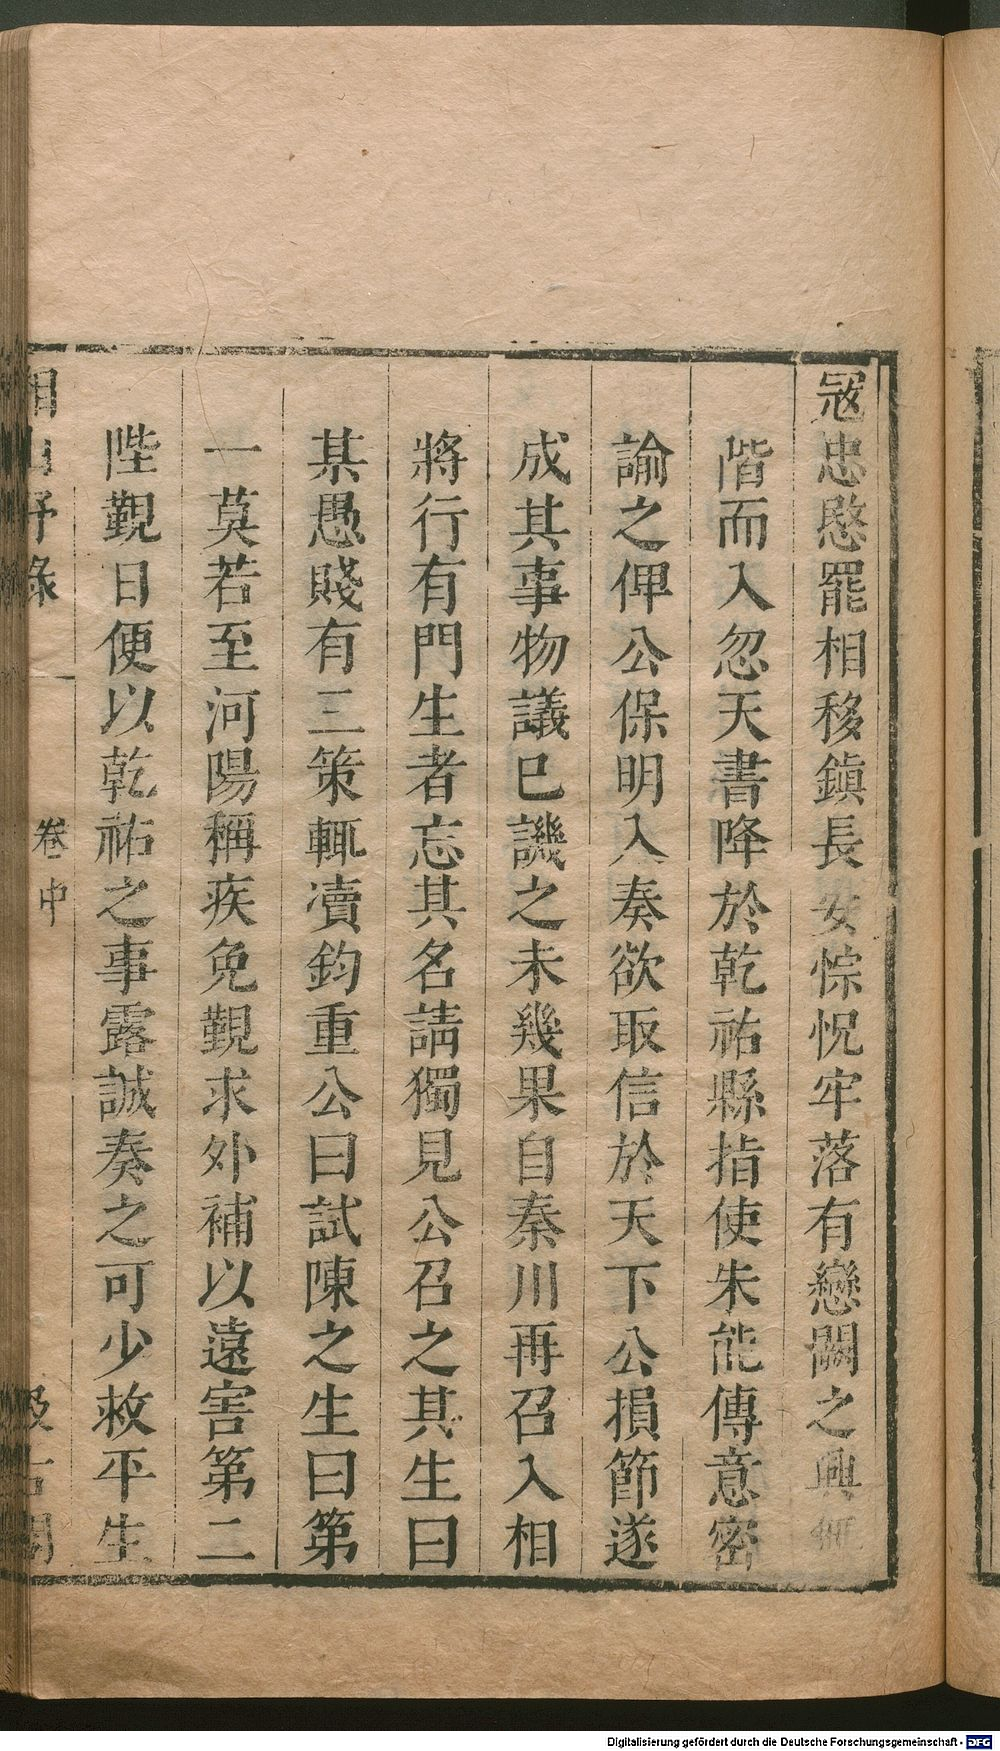 冦忠愍罷相移鎮長安悰怳牢落有戀闕之興無
階而入忽天書降於乾祐縣指使朱能傳意密
諭之俾公保明入奏欲取信於天下公損節遂
成其事物議已譏之未幾果自秦川再召入相
將行有門生者忘其名請獨見公召之其生曰
某愚賤有三策輒凟鈞重公曰試陳之生曰第
一莫若至河陽稱疾免覲求外補以遠害第二
陛覲日便以乾祐之事露誠奏之可少救平生
湘山野錄
卷中
汲古閣
Digitalisierung gefördert durch die Deutsche Forschungsgemeinschaft - DFG